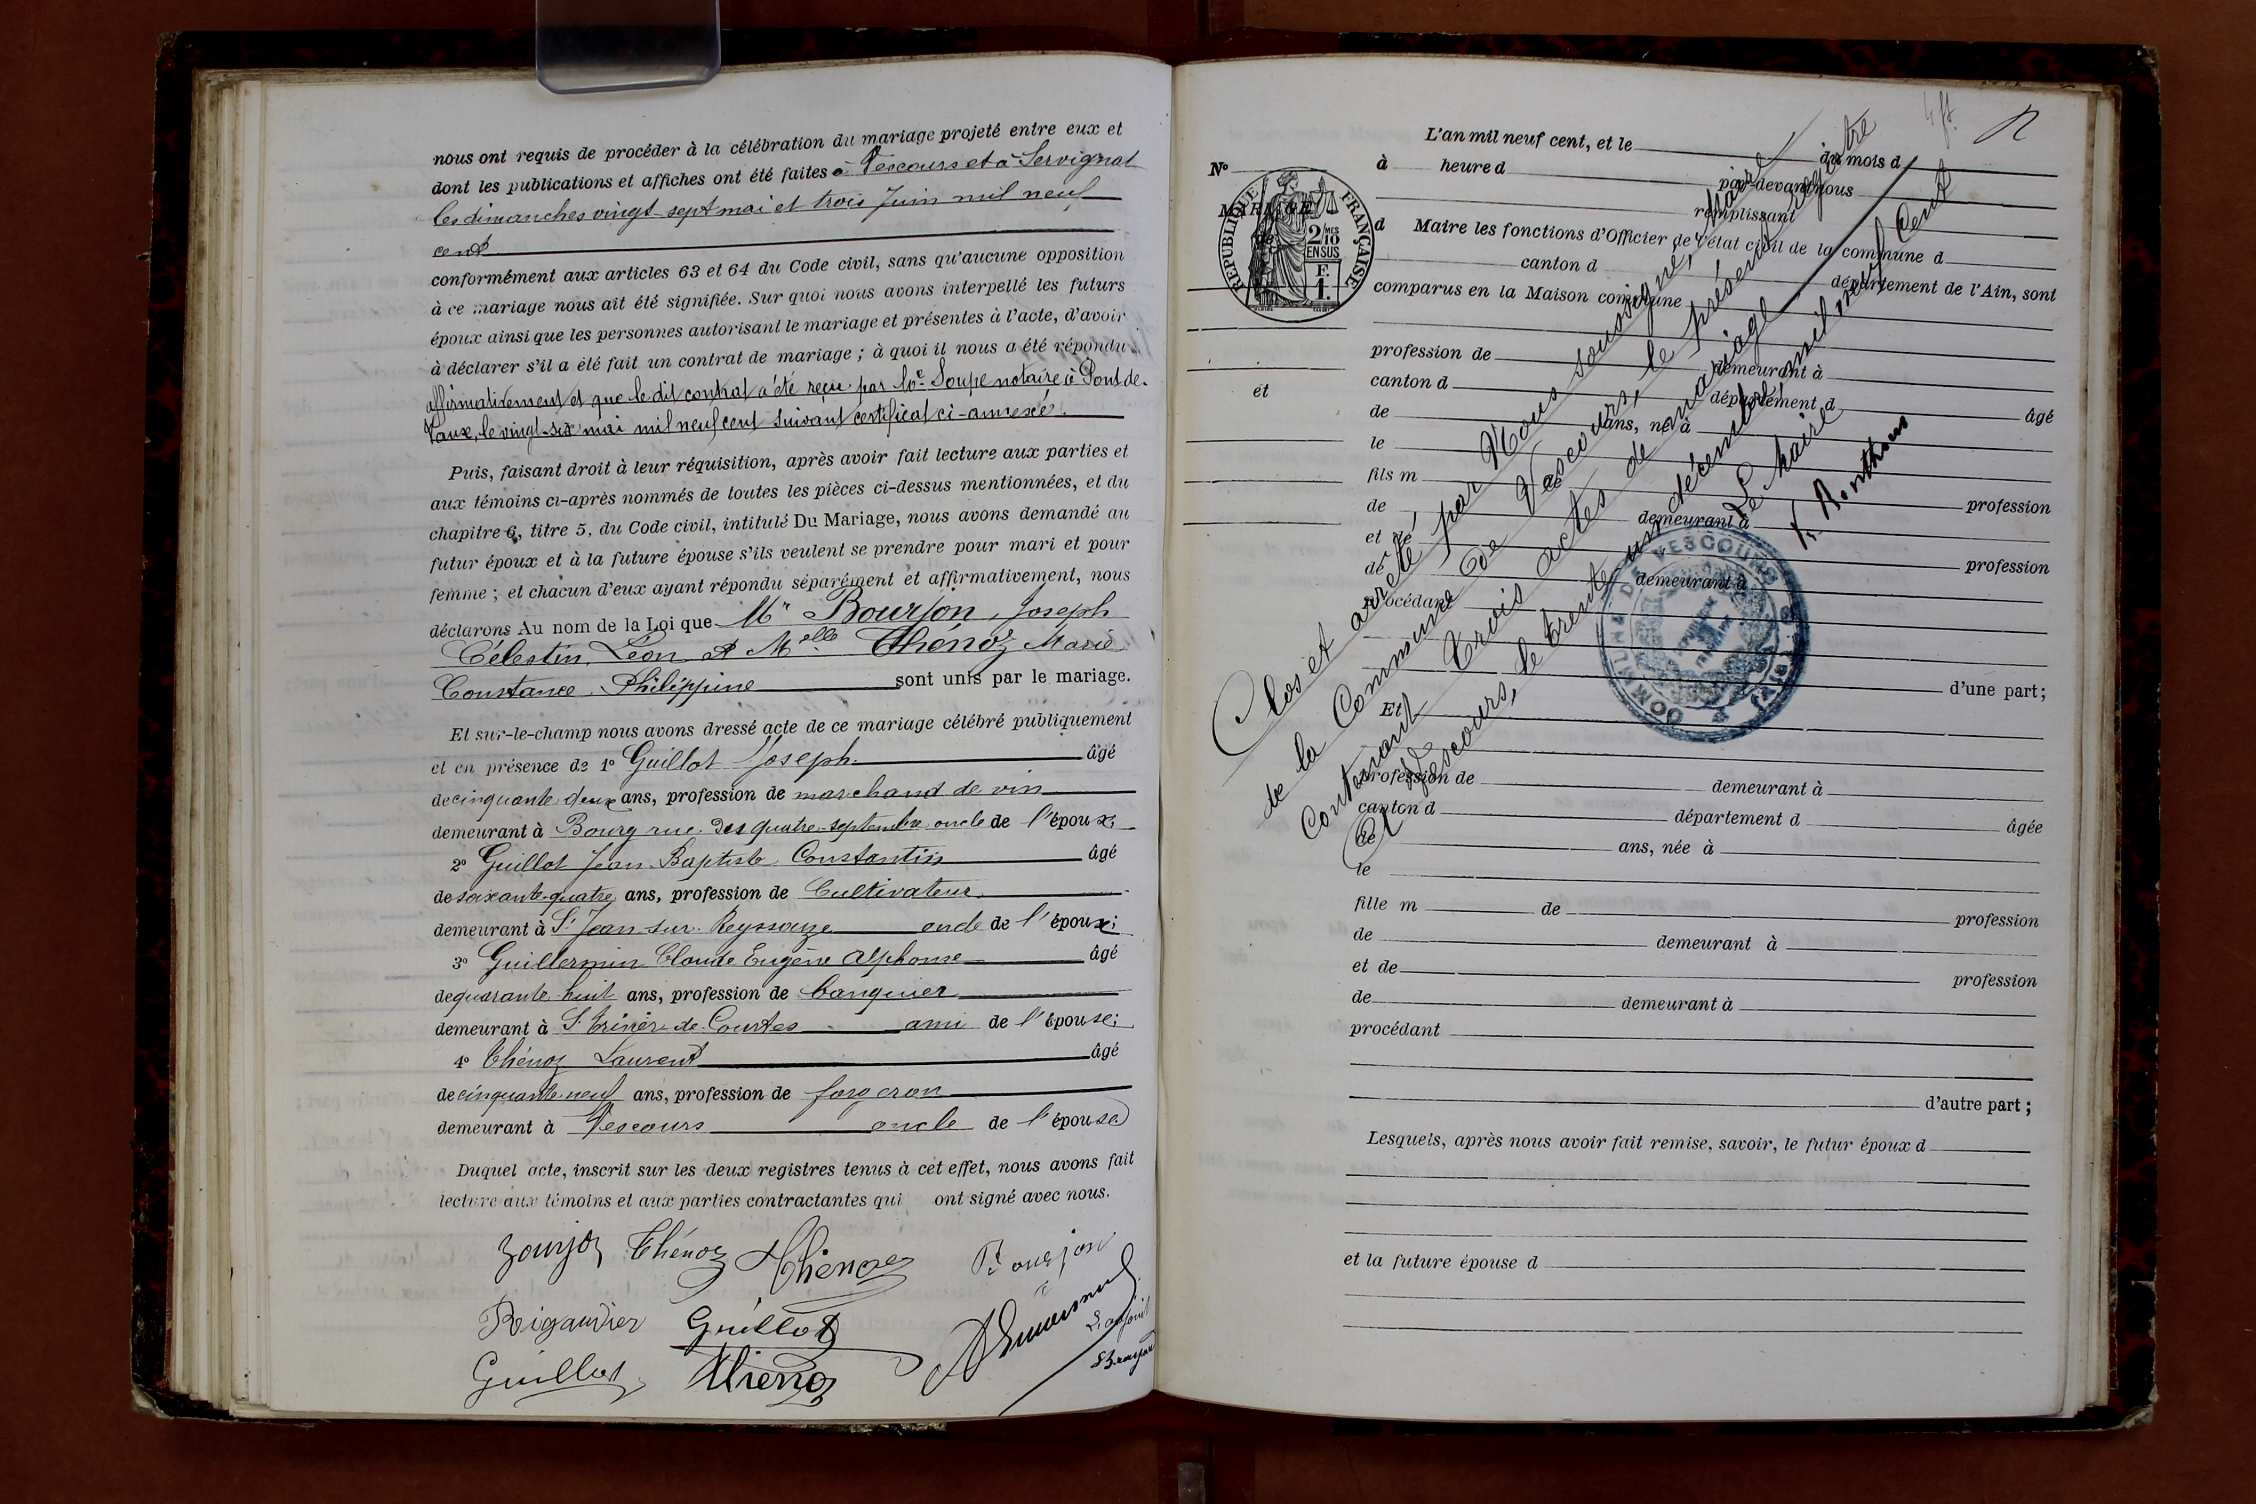 nous ont requis de procéder à la célébration du mariage projeté entre eux et
dont les publications et affiches ont été faites à Vescours et à Servignat
les dimanches vingt-sept mai et trois Juin mil neuf
cent
conformément aux articles 63 et 64 du Code civil, sans qu'aucune opposition
à ce mariage nous ait été signifiée. Sur quoi nous avons interpellé les futurs
époux ainsi que les personnes autorisant le mariage et présentes à l'acte, d'avoir
à déclarer s'il a été fait un contrat de mariage ; à quoi il nous a été répondu
affirmativement et que le dit contrat a été reçu par Me Soupe notaire à Pont-de-
Vaux, le vingt-six mai mil neuf cent suivant certificat ci-annexé.
Puis, faisant droit à leur réquisition, après avoir fait lecture aux parties et
aux témoins ci-après nommés de toutes les pièces ci-dessus mentionnées, et du
chapitre 6, titre 5, du Code civil, intitulé Du Mariage, nous avons demandé au
futur époux et à la future épouse s'ils veulent se prendre pour mari et pour
femme ; et chacun d'eux ayant répondu séparément et affirmativement, nous
déclarons Au nom de la Loi que Mr Bourjon, Joseph
Célestin, Léon et Melle Thénoz Marie
Constance Philippine sont unis par le mariage.
Et sur-le-champ nous avons dressé acte de ce mariage célébré publiquement
et en présence de 1o Guillot Joseph âgé
de cinquante deux ans, profession de marchand de vin
demeurant à Bourg rue des quatre-septembre oncle de l'époux;
2o Guillot Jean Baptiste Constantin âgé
de soixante-quatre ans, profession de Cultivateur
demeurant à St Jean sur Reyssouze oncle de l'époux;
3o Guillermin Claude Eugène Alphonse âgé
de quarante huit ans, profession de banquier
demeurant à St Trinier-de-Courtes ami de l'épouse;
4o Thénoz Laurent âgé
de cinquante neuf ans, profession de forgeron
demeurant à Vescours oncle de l'épouse
Duquel acte, inscrit sur les deux registres tenus à cet effet, nous avons fait
lecture aux témoins et aux parties contractantes qui ont signé avec nous.
Bourjon Thénoz Thenoz Bourjon
Rigaudier Guillot
Guillot Thenoz
L'an mil neuf cent, et le du mois d
à heure d par-devant nous
No
MARIAGE
de
et
RÉPUBLIQUE FRANÇAISE
2 MES
10
EN SUS
F.
1.
remplissant
d Maire les fonctions d'Officier de l'état civil de la commune d
canton d département de l'Ain, sont
comparus en la Maison commune
profession de demeurant à
canton d département d
de ans, né à âgé
le
fils m de
de profession
demeurant à
et de
de profession
demeurant à
procédant
d'une part;
Et
profession de demeurant à
canton d département d âgée
de ans, née à
le
fille m de profession
de demeurant à
et de profession
de demeurant à
procédant
d'autre part ;
Lesquels, après nous avoir fait remise, savoir, le futur époux d
et la future épouse d
Clos et arrêté par Nous soussigné, Maire
de la Commune de Vescours, le présent registre
Contenant trois actes de mariage
Et Vescours, le trente un décembre mil neuf cent
Le Maire
COMMUNE DE VESCOURS